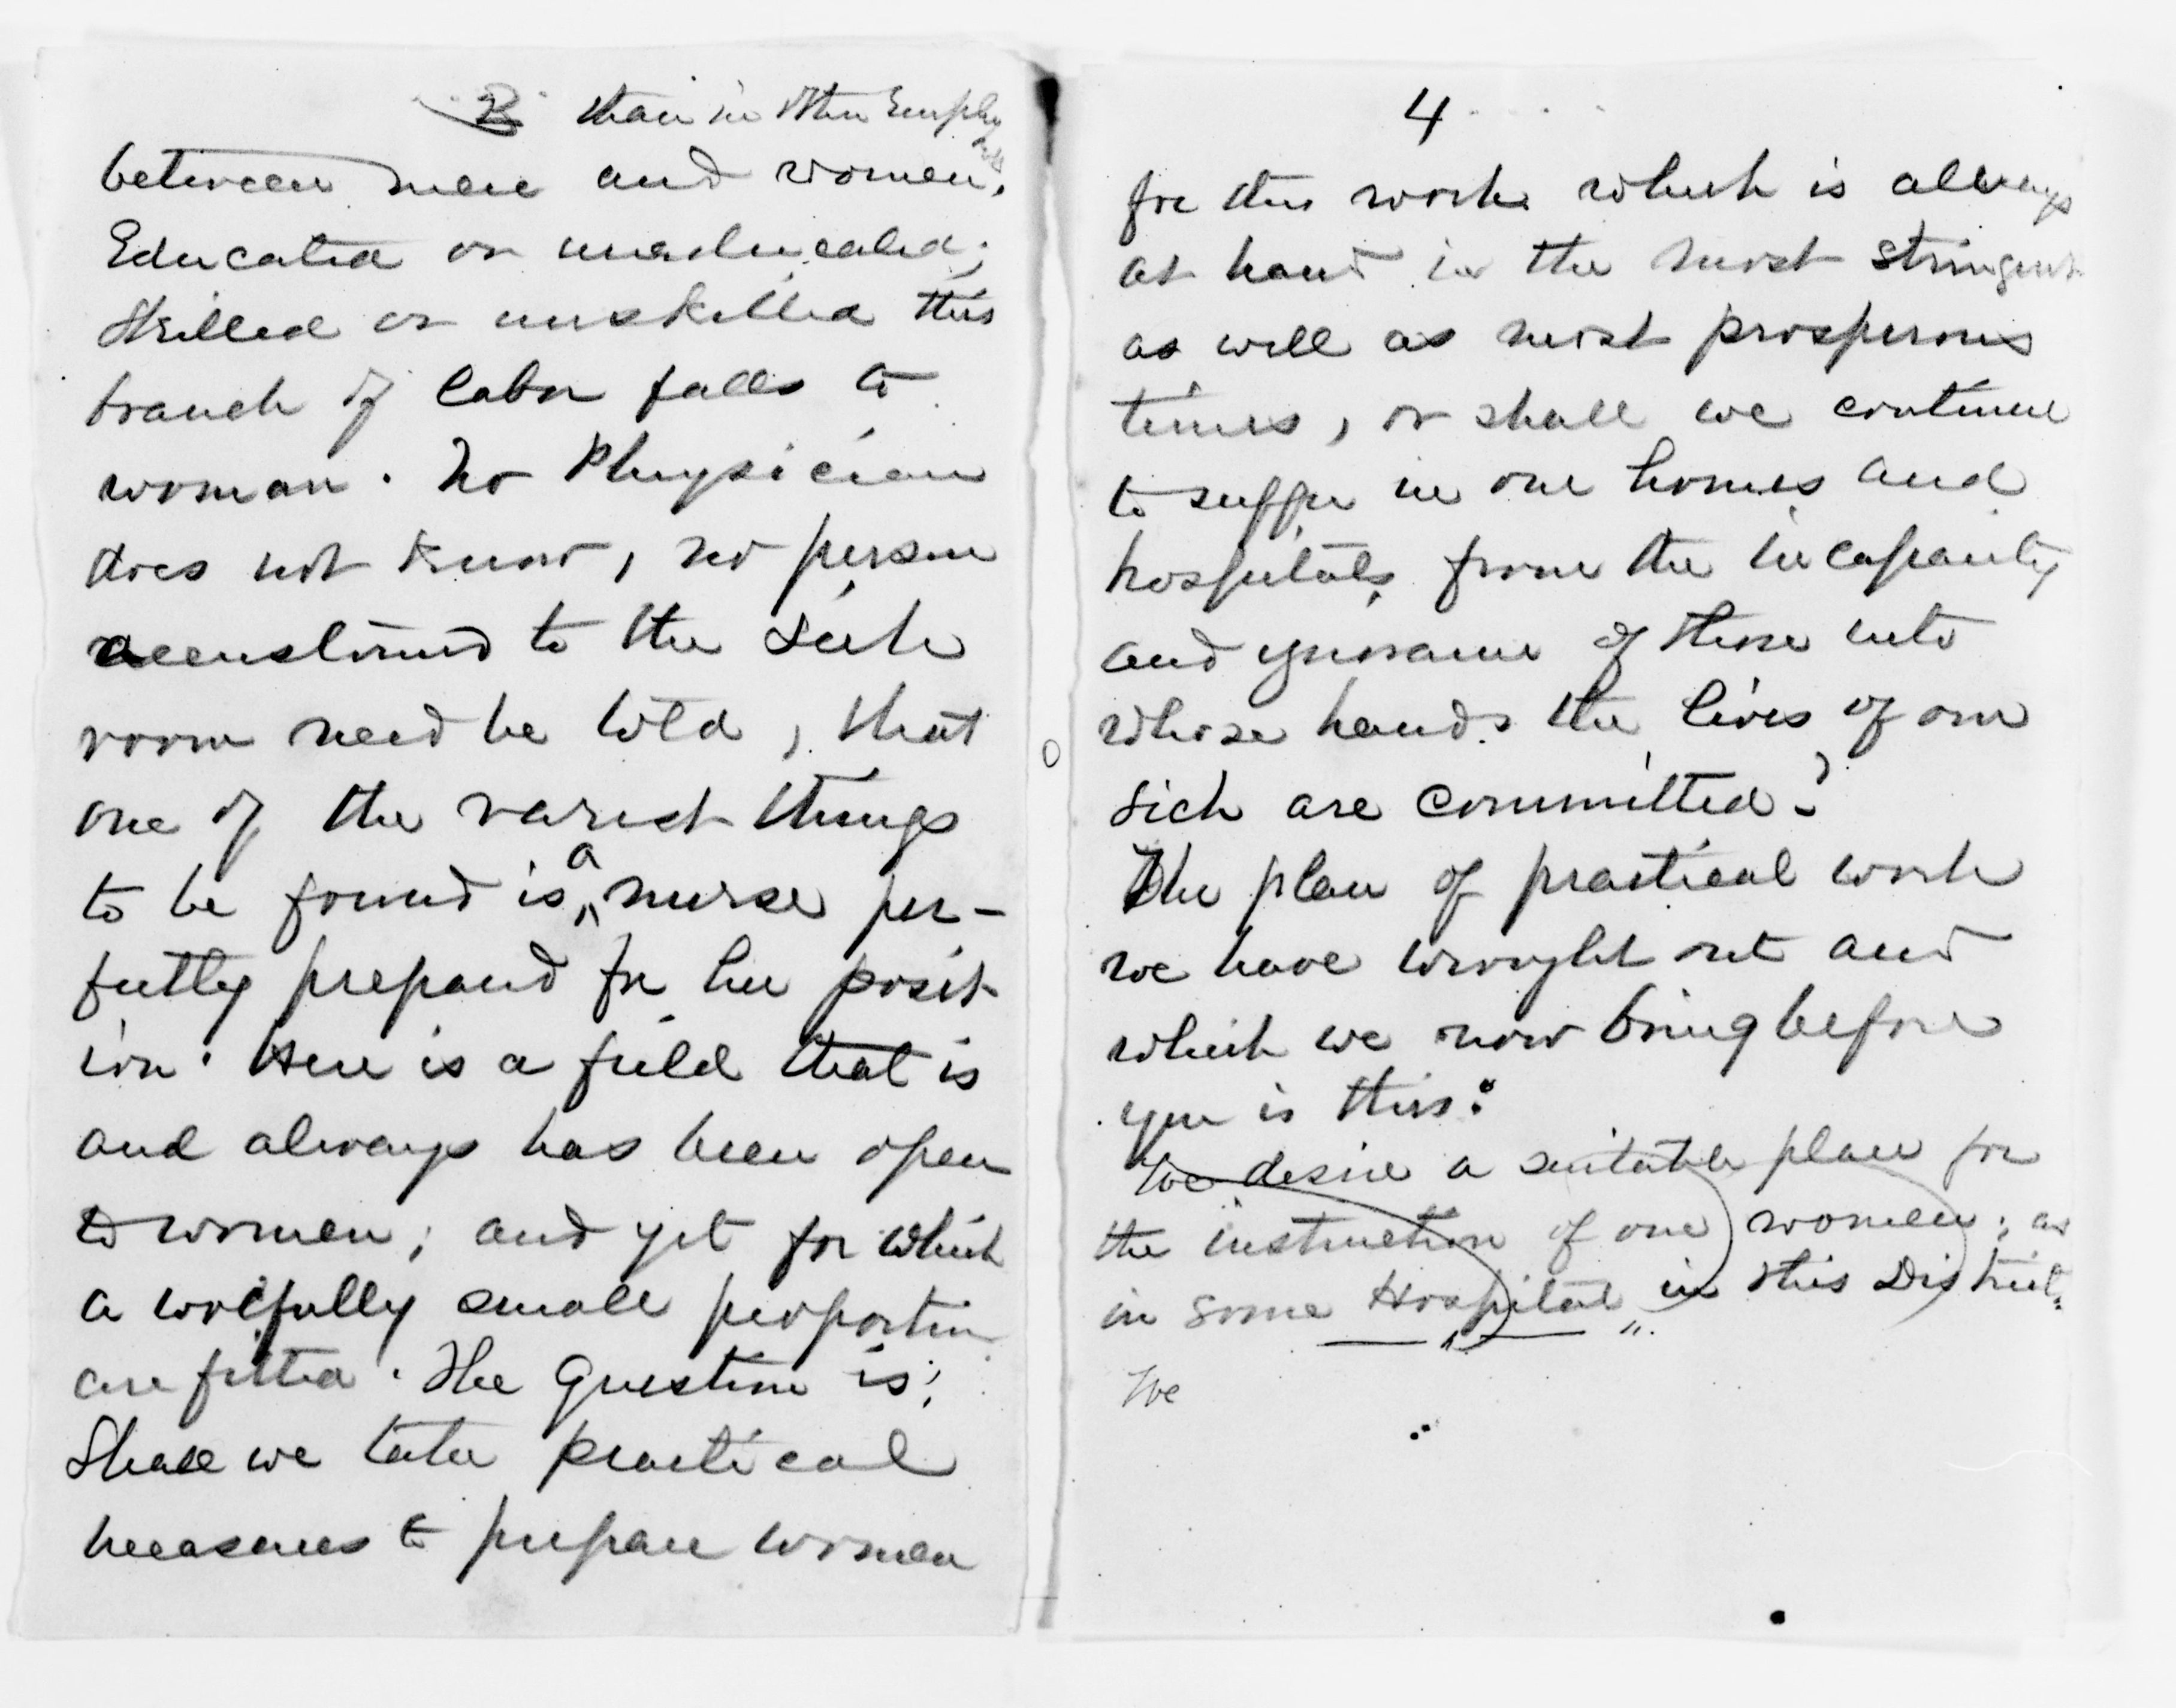 than in other Employ
between men and women.
Educated or uneducated;
Skilled or unskilled this
branch of labor falls to
woman. No Physician
does not know, no person
accustomed to the sick
room need be told, that
one of the rarest things
a
to be found is nurse per-
fectly prepared for her posit-
ion. Here is a field that is
and always has been open
to women; and yet for which
a woefully small proportion
are fitted. The question is;
Shall we take practical
measures to prepare women
4
for this work which is allways
at hand in the most stringent
as well as most prosperous
times, or shall we continue
to suffer in our homes and
hospitals from the incapacity
and ignorance of those into
whose hands the lives of our
sick are committed?
The plan of practical work
we have wrought out and
which we now bring before
you is this:
We desire a suitable place for
the instruction of our women; as
in some Hospital in this District.
We